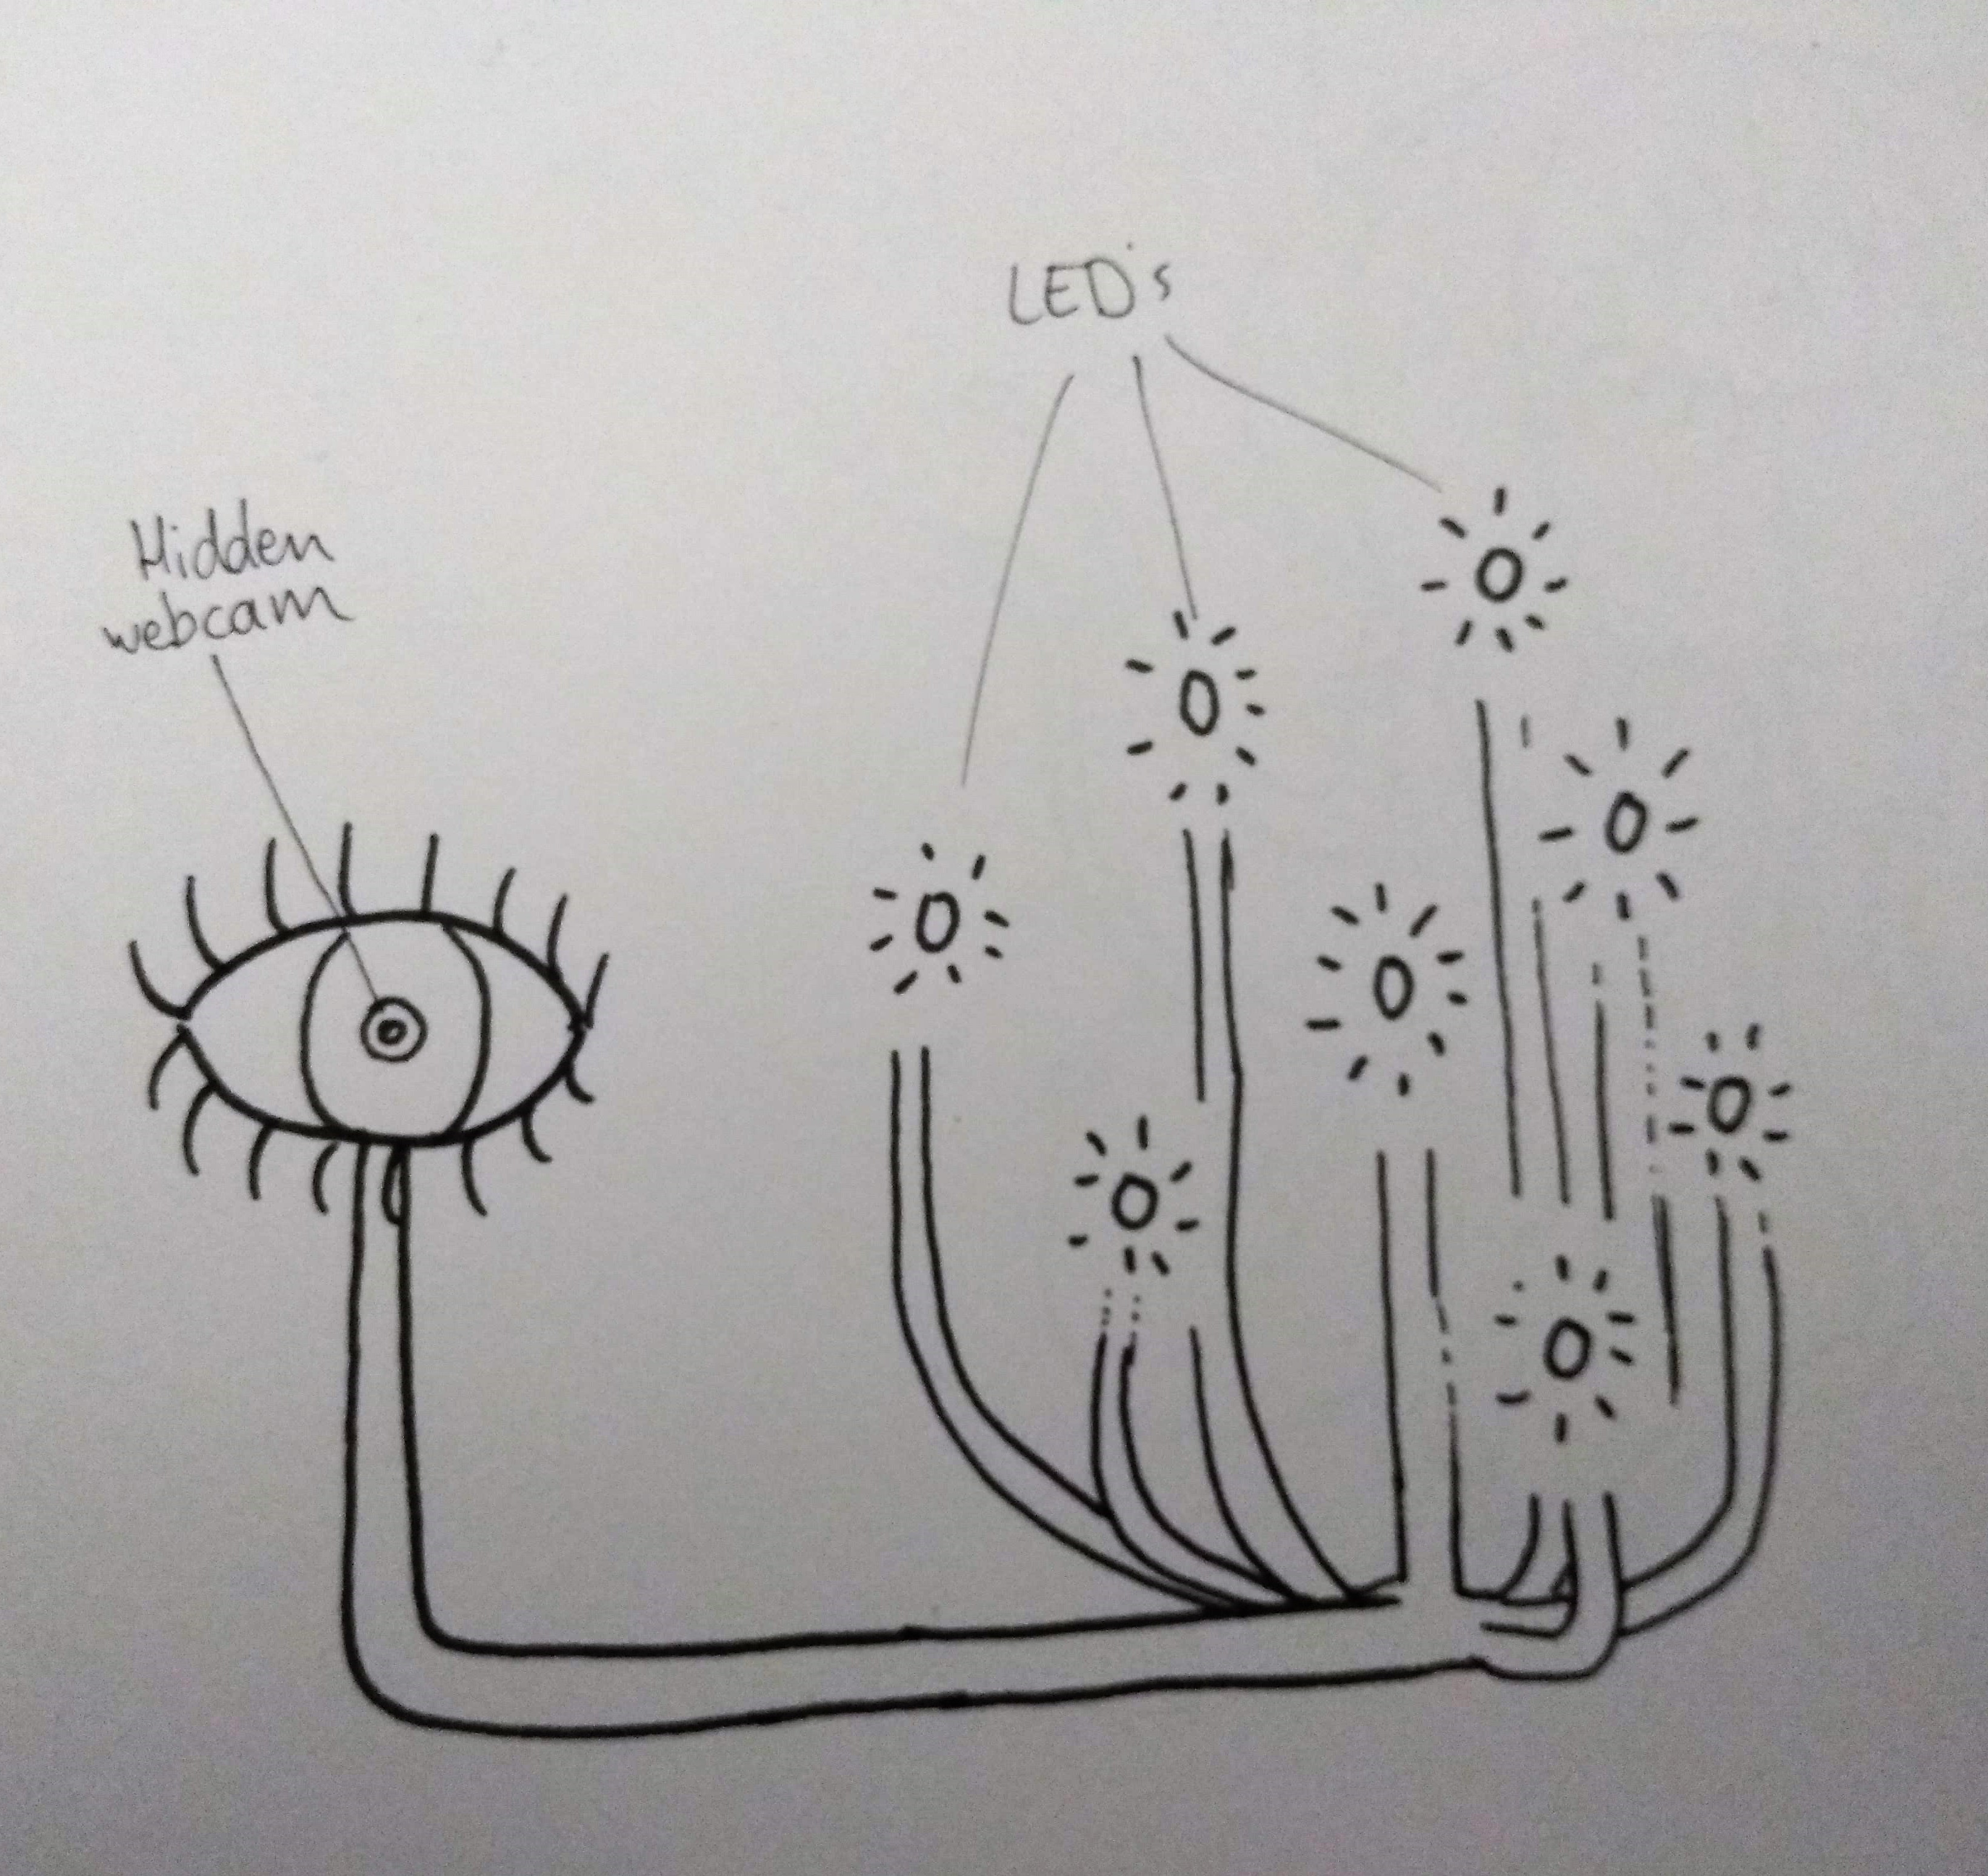 LED's
Hidden
webcam